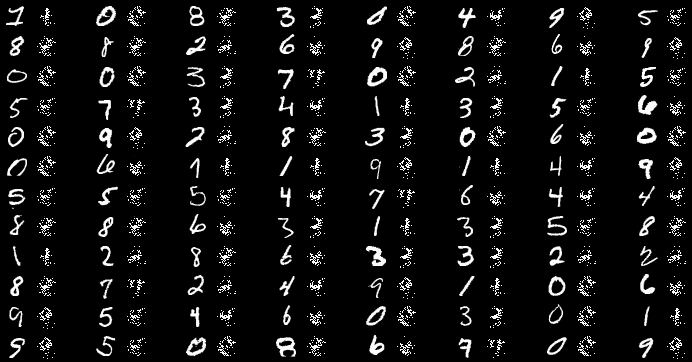 1 0 8 3 0 4 9 5
8 8 2 6 9 8 6 9
0 0 3 7 0 2 1 5
5 7 3 4 1 3 5 6
0 9 2 8 3 0 6 0
0 6 1 1 9 1 4 9
5 5 5 4 7 6 4 4
8 8 6 3 1 3 5 8
1 2 8 6 3 3 2 2
8 7 2 4 9 1 0 6
9 5 4 6 0 3 0 1
9 5 0 8 6 7 0 9